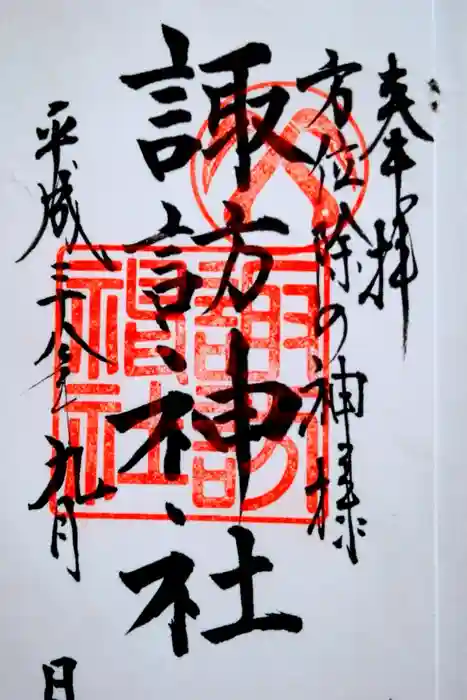 奉拝
方位除の神様
諏訪神社
諏訪神社
平成二十八年九月 日